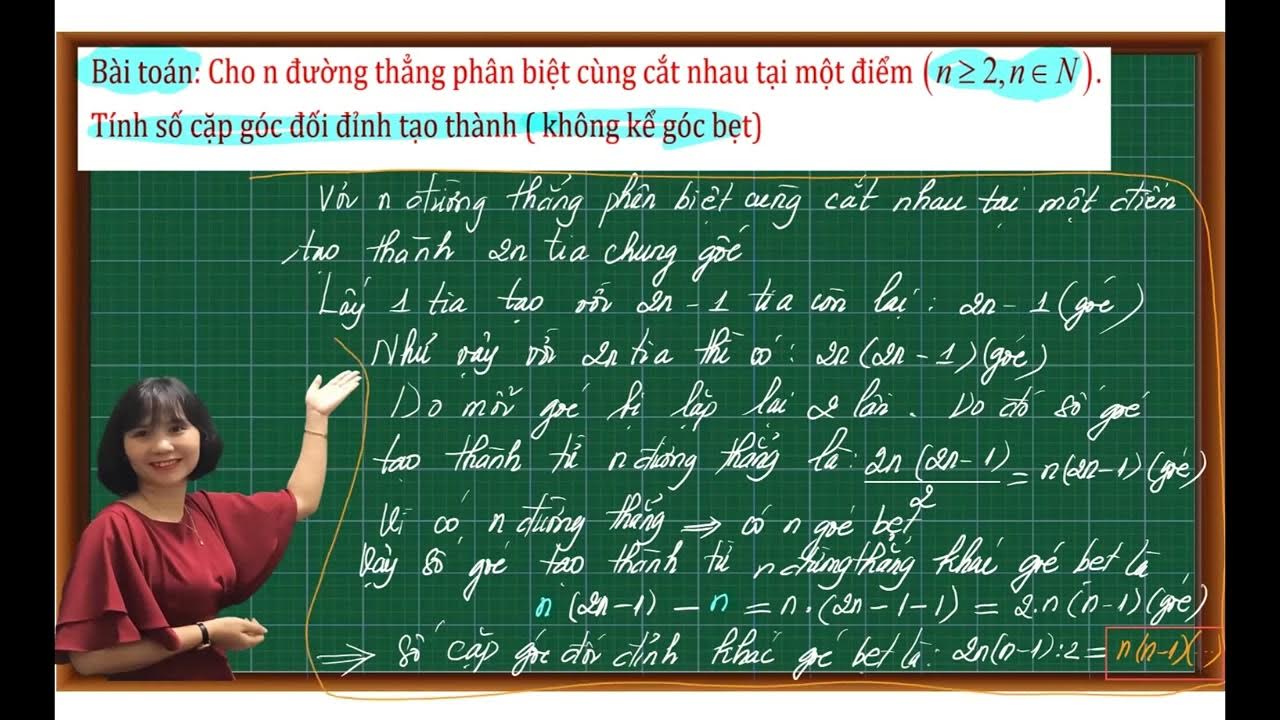 Bài toán: Cho n đường thẳng phân biệt cùng cắt nhau tại một điểm (n ≥ 2, n ∈ N).
Tính số cặp góc đối đỉnh tạo thành ( không kể góc bẹt)
Với n đường thẳng phân biệt cùng cắt nhau tại một điểm
tạo thành 2n tia chung gốc
Lấy 1 tia tạo với 2n - 1 tia còn lại : 2n - 1 (góc)
Như vậy với 2n tia thì có : 2n (2n - 1) (góc)
Do mỗi góc bị lặp lại 2 lần . Do đó số góc
tạo thành từ n đường thẳng là : 2n (2n - 1) / 2 = n(2n-1) (góc)
Vì có n đường thẳng ⇒ có n góc bẹt
Vậy số góc tạo thành từ n đường thẳng khác góc bẹt là
n (2n-1) - n = n . (2n - 1 - 1) = 2.n (n-1) (góc)
⇒ Số cặp góc đối đỉnh khác góc bẹt là : 2n(n-1) : 2 = n(n-1)(...)